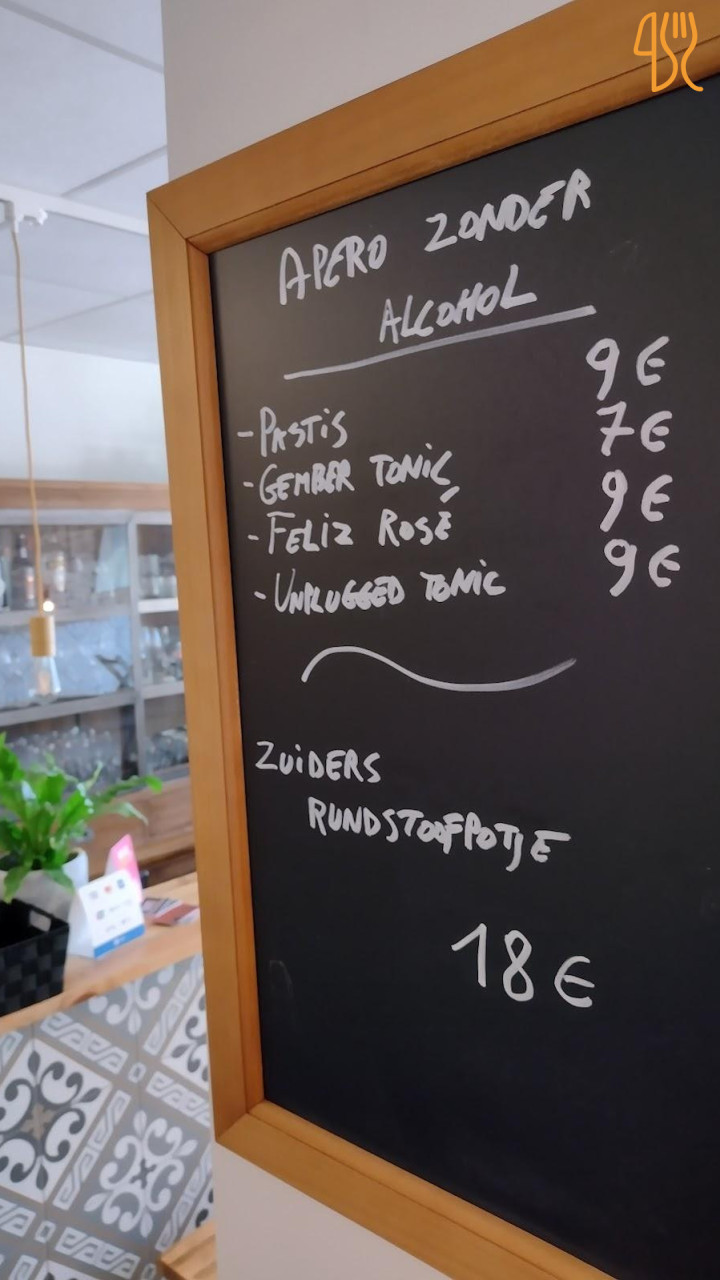 APERO ZONDER
ALCOHOL
- PASTIS 9€
- GEMBER TONIC 7€
- FELIZ ROSÉ 9€
- UNPLUGGED TONIC 9€
ZUIDERS
RUNDSTOOFPOTJE
18€